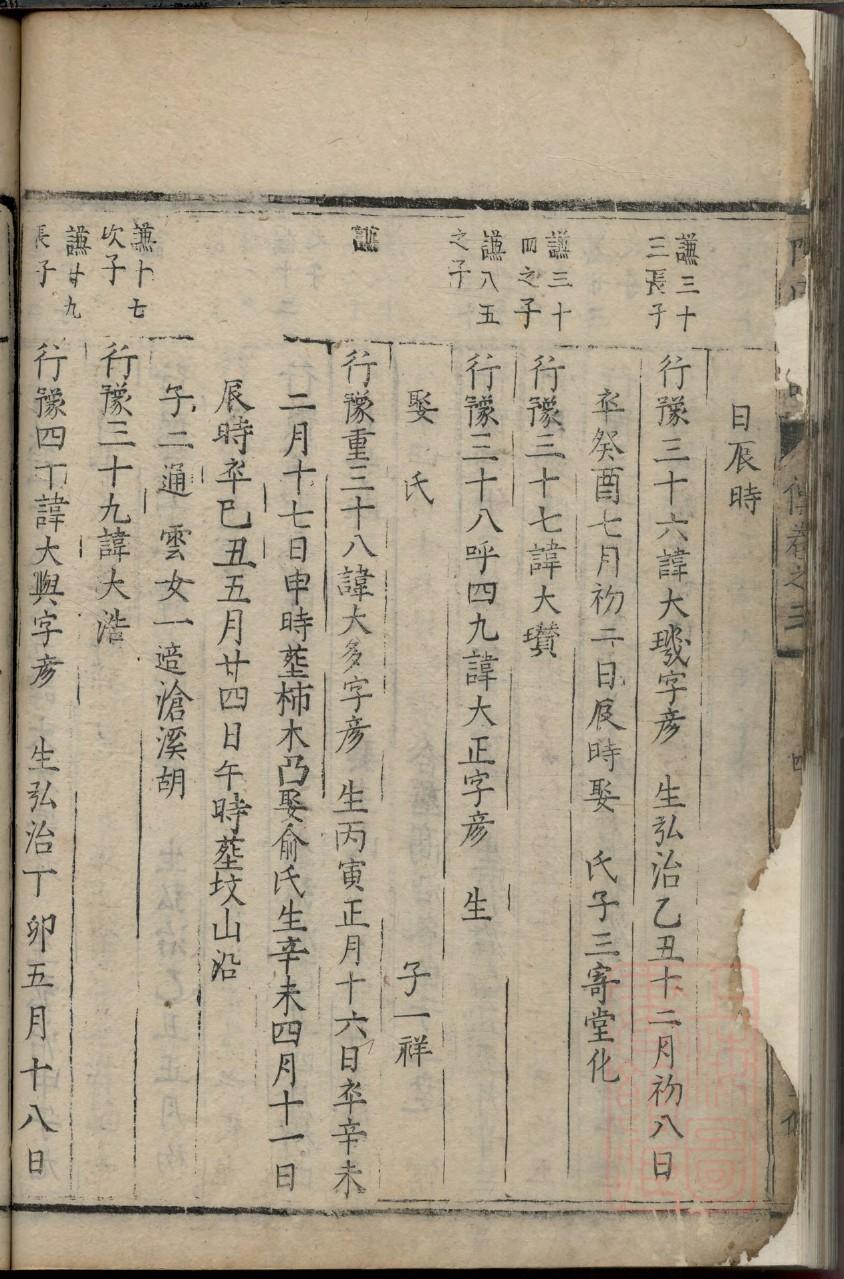 傳卷之三
日辰時
謙三十
三長子
行豫三十六諱大璣字彦 生弘治乙丑十二月初八日
卒癸酉七月初二日辰時娶 氏子三寄堂化
謙三十
四之子
行豫三十七諱大瓚
謙八五
之子
行豫三十八呼四九諱大正字彦 生
娶 氏 子一祥
謙
行豫重三十八諱大多字彦 生丙寅正月十六日卒辛未
二月十七日申時塟柿木凸娶俞氏生辛未四月十一日
辰時卒已丑五月廿四日午時塟坟山沿
子二通 雲女一適滄溪胡
謙十七
次子
行豫三十九諱大浩
謙廿九
長子
行豫四十諱大興字彦 生弘治丁卯五月十八日